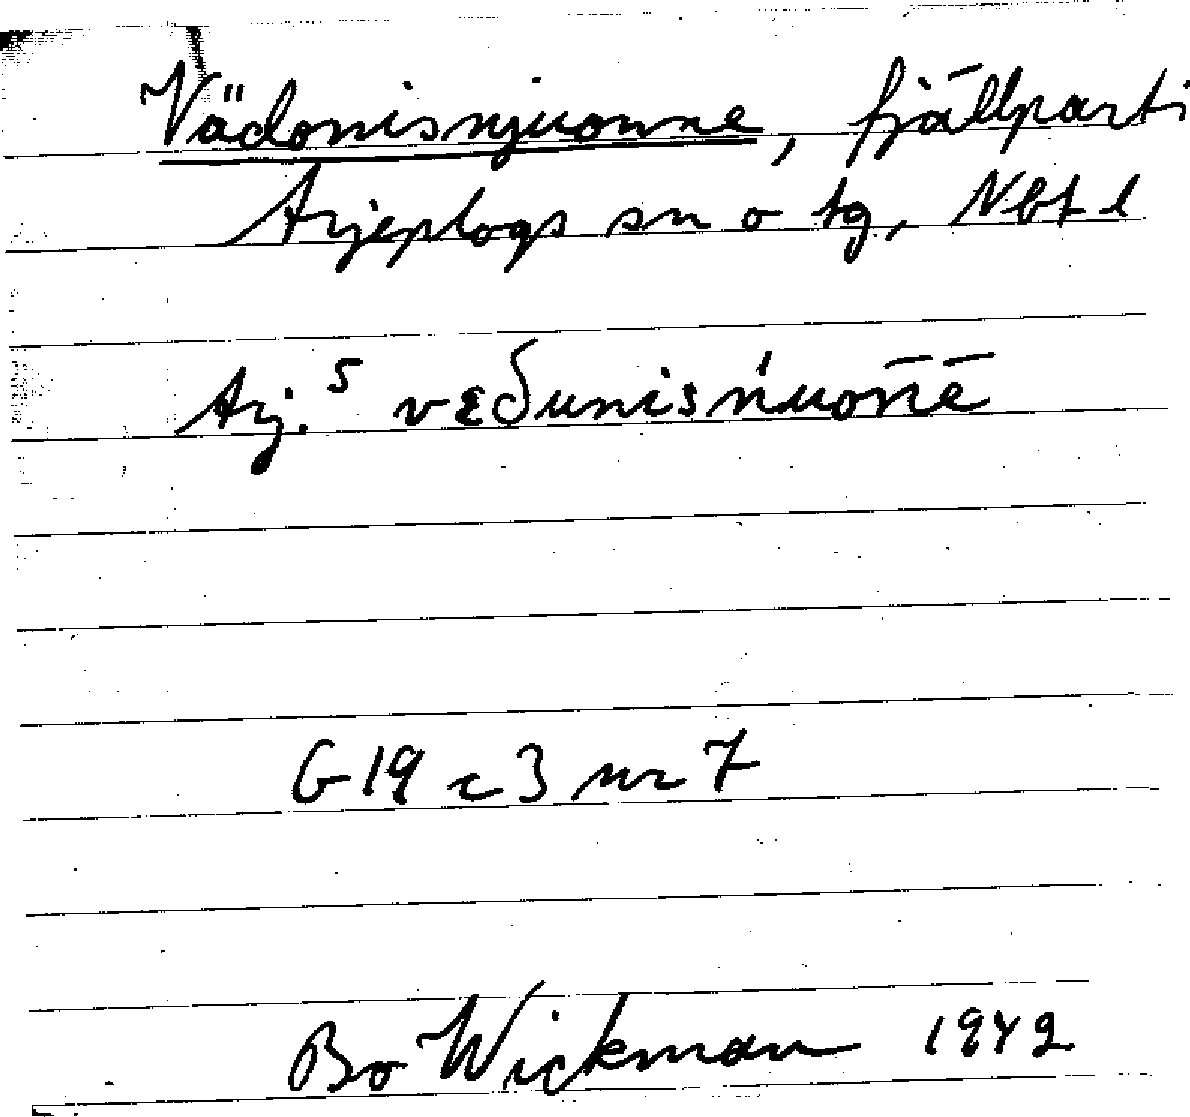 Vädonisnjuonne, fjällparti
Arjeplogs sn o tg, Nbt l
Arj.⁵ vɛδunisńuōn̄ē
G 19 c 3 nr 7
Bo Wickman 1942